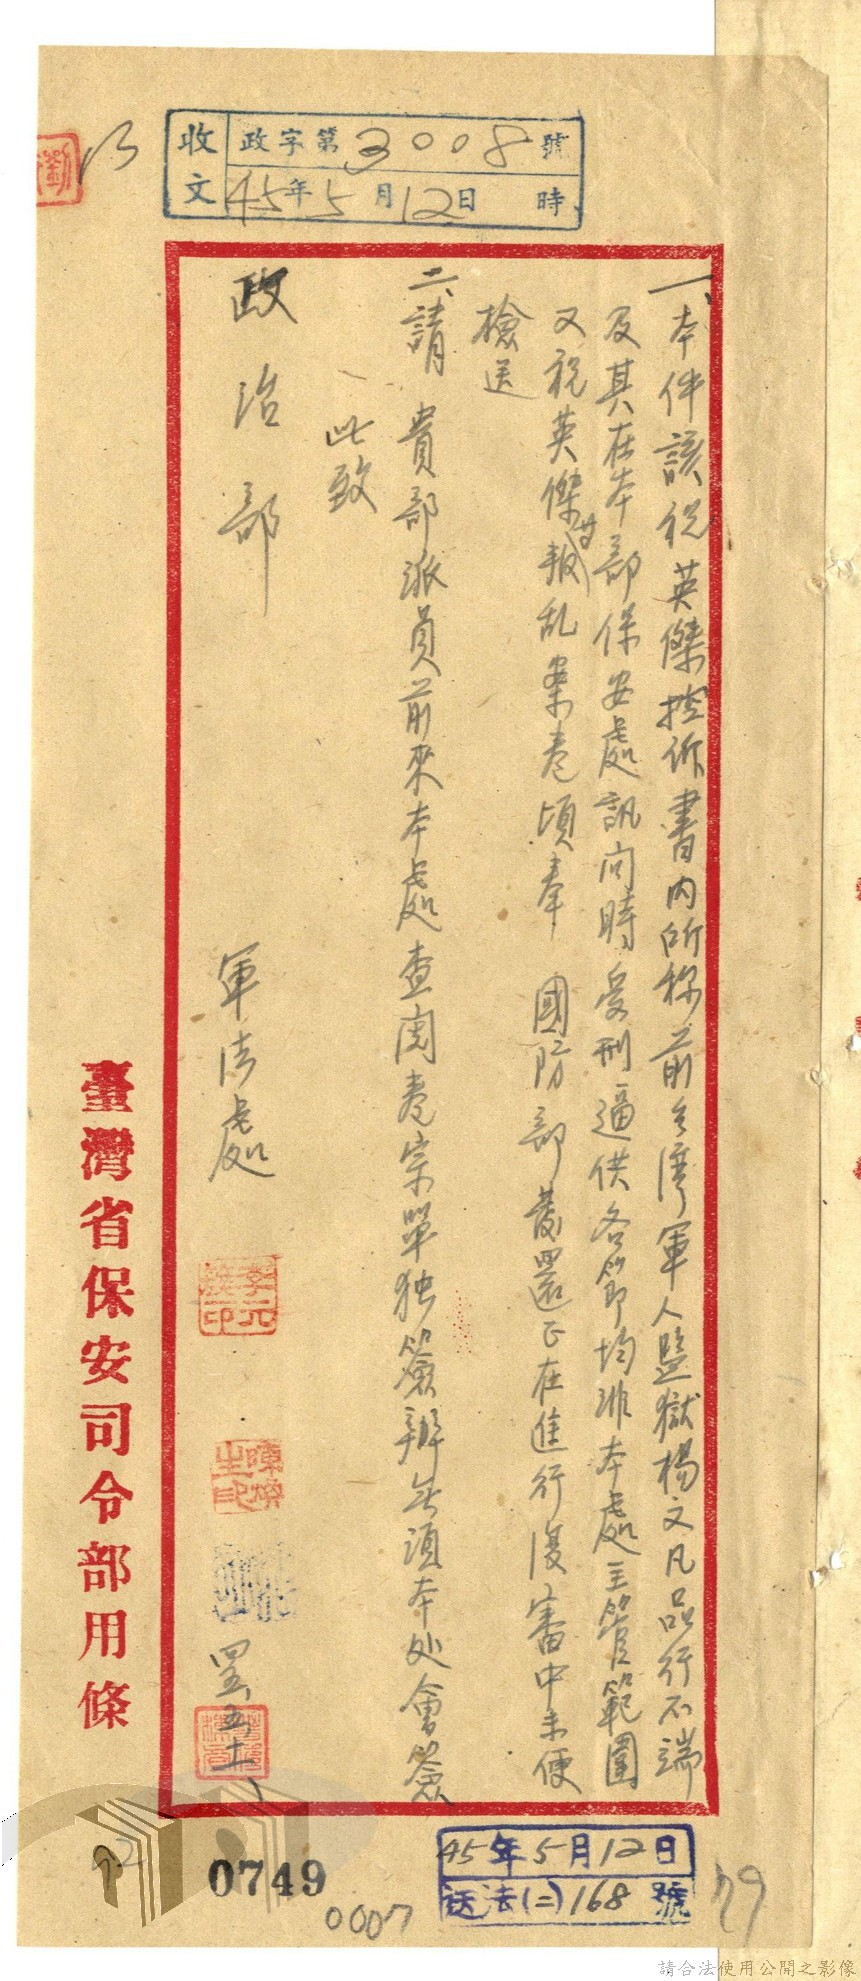 收文
政字第3008號
45年5月12日 時
一、本件該祝英傑控訴書內所称前台湾軍人監獄楊文凡品行不端
及其在本部保安處訊问時受刑逼供各節均非本處主管範圍
又祝英傑等叛乱案卷頃奉 國防部發還正在進行復審中未便
檢送
二、請 貴部派員前來本處查閱卷宗單独簽辦無須本处會簽
此致
政治部
軍法處
四五、五、十一、
臺灣省保安司令部用條
45年5月12日
送法(二)168號
0749
0007
請合法使用公開之影像